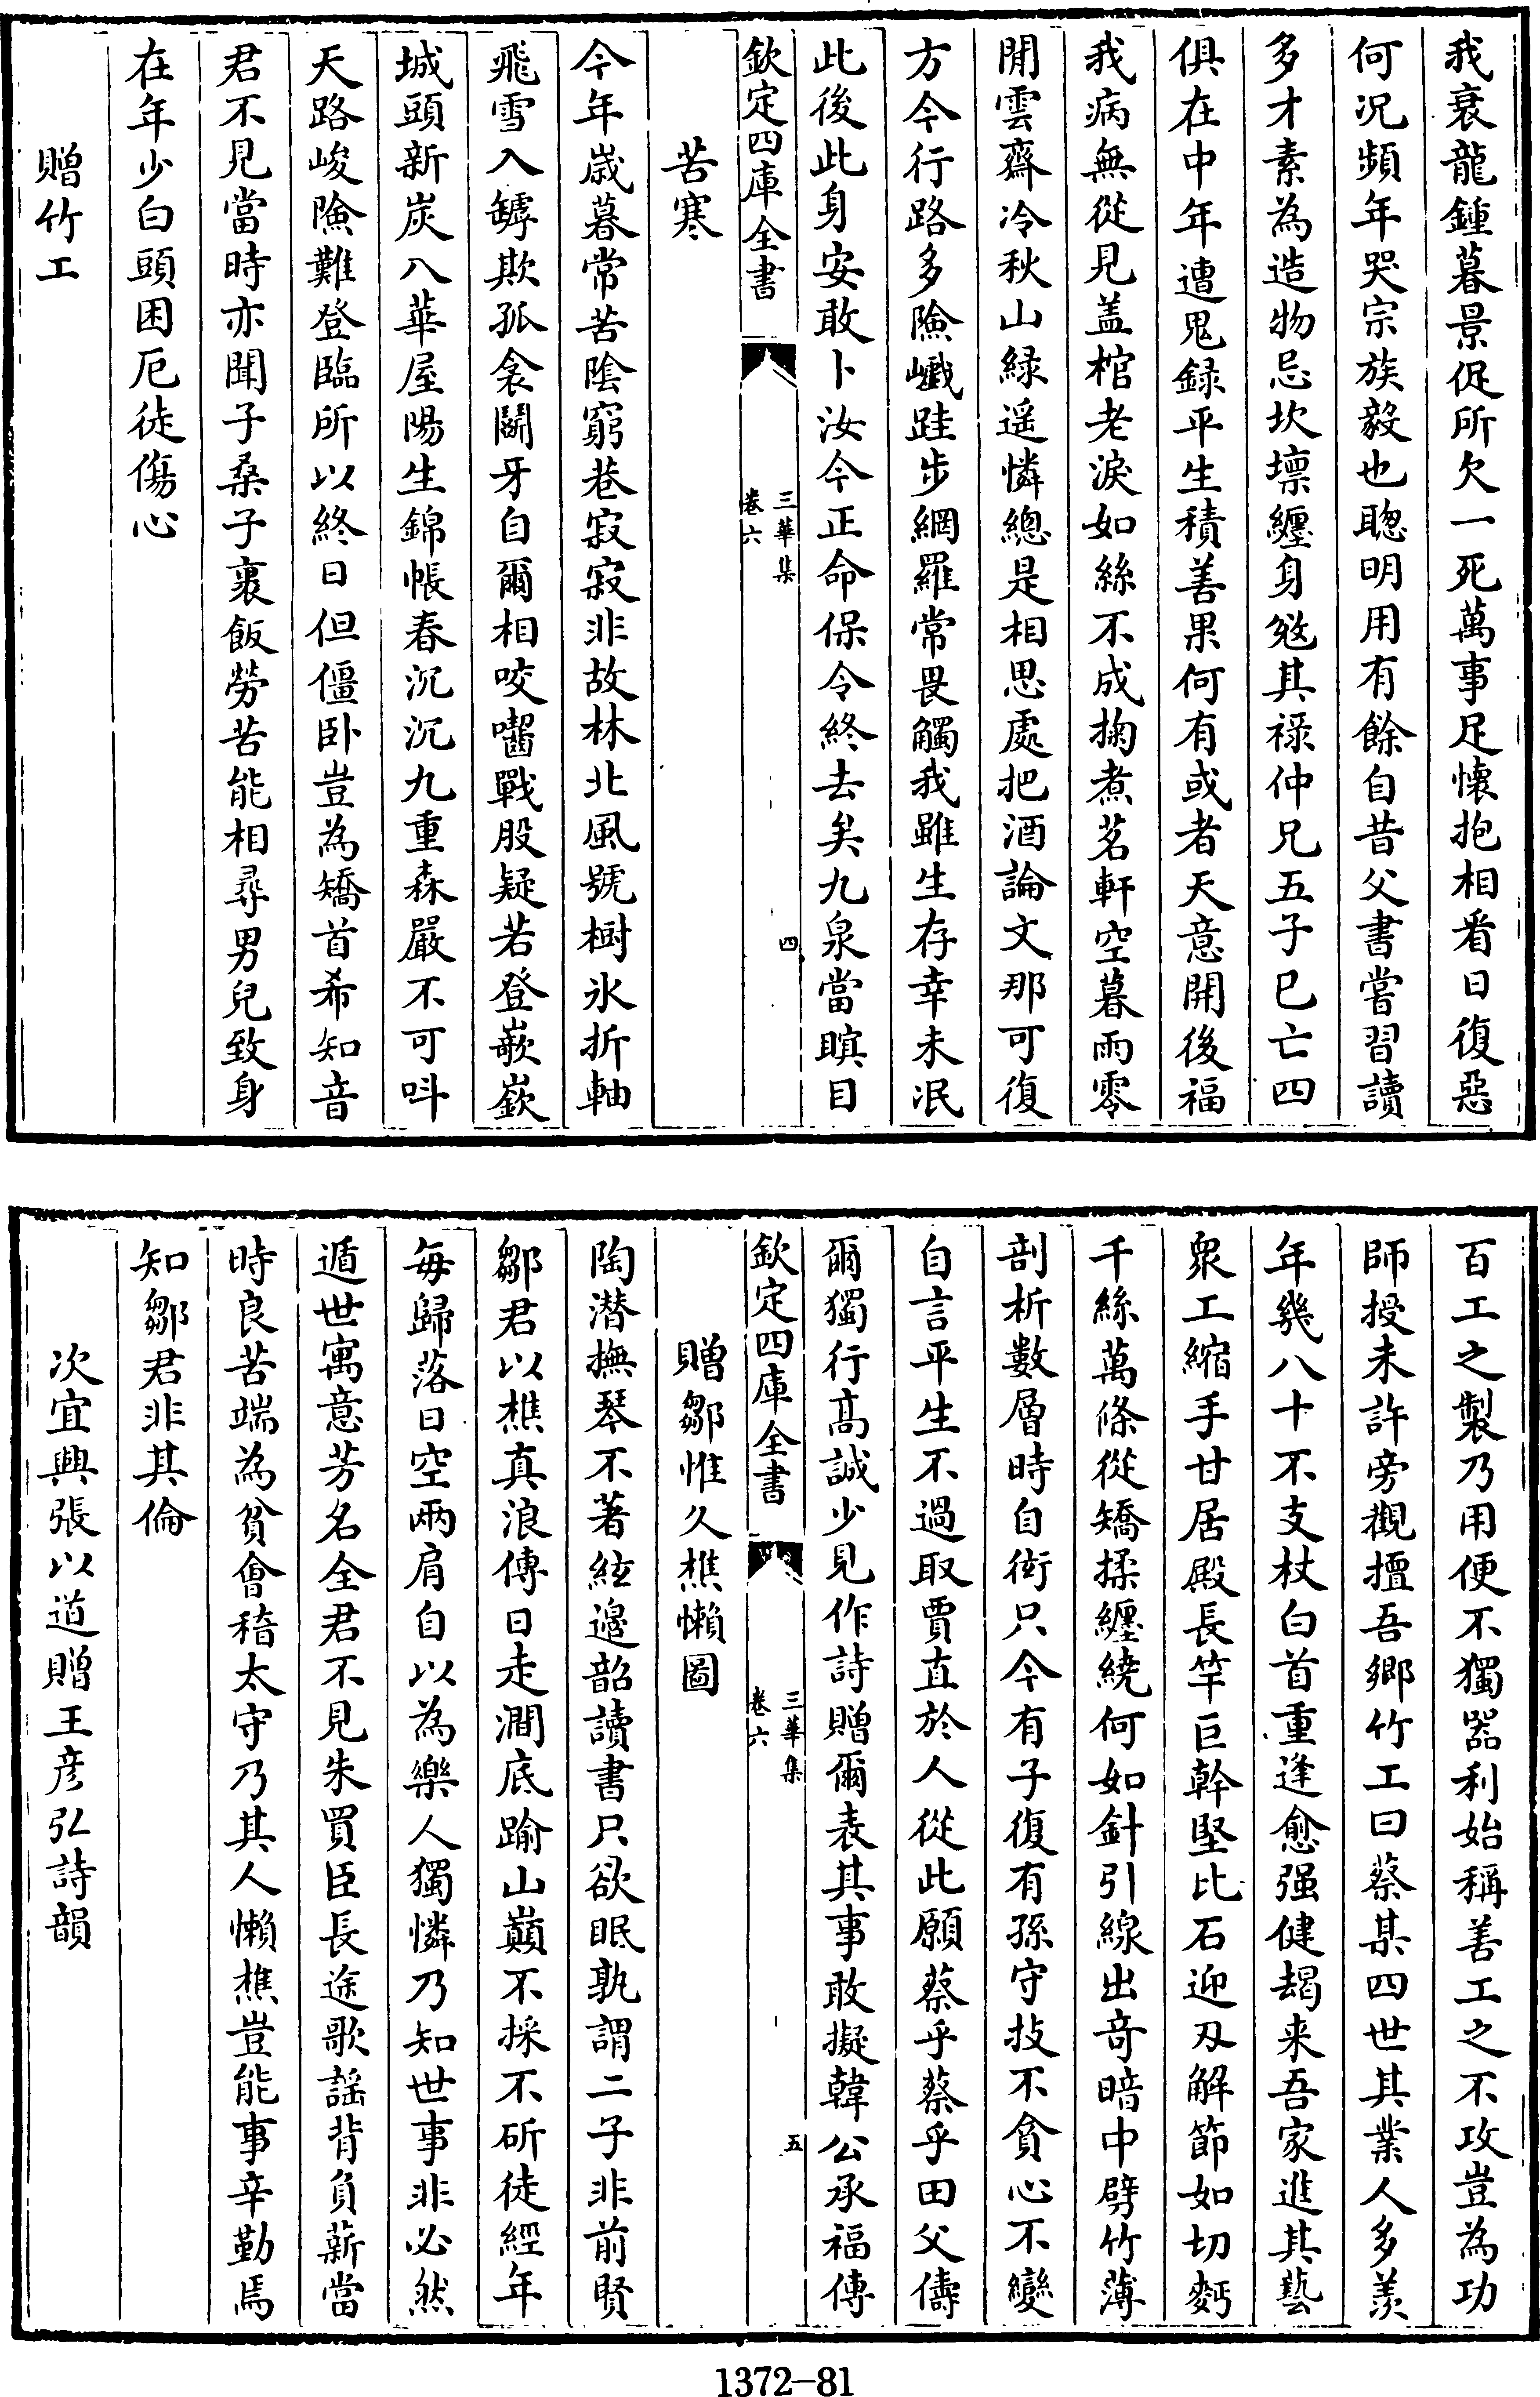 我衰龍鍾暮景促所欠一死萬事足懷抱相看日復惡
何况頻年哭宗族毅也聦明用有餘自昔父書嘗習讀
多才素為造物忌坎壈纏身兊其禄仲兄五子巳亡四
俱在中年遭鬼録平生積善果何有或者天意開後福
我病無從見盖棺老淚如絲不成掬煮茗軒空暮雨零
閒雲齋冷秋山緑遥憐總是相思處把酒論文那可復
方今行路多險巇跬步網羅常畏觸我雖生存幸未泯
此後此身安敢卜汝今正命保令終去矣九泉當瞑目
欽定四庫全書
三華集
卷六
四
苦寒
今年歳暮常苦陰窮巷寂寂非故林北風號樹氷折軸
飛雪入罅欺孤衾鬭牙自爾相咬嚙戰股疑若登嶔嶔
城頭新炭入華屋陽生錦帳春沉沉九重森嚴不可呌
天路峻險難登臨所以終日但僵卧豈為矯首希知音
君不見當時亦聞子桑子裹飯勞苦能相尋男兒致身
在年少白頭困厄徒傷心
贈竹工
百工之製乃用便不獨器利始稱善工之不攻豈為功
師授未許旁觀擅吾鄉竹工曰蔡某四世其業人多羨
年幾八十不支杖白首重逢愈强健朅来吾家進其藝
衆工縮手甘居殿長竿巨幹堅比石迎刃解節如切麪
千絲萬條從矯揉纏繞何如針引線出竒暗中劈竹薄
剖析數層時自衒只今有子復有孫守技不貪心不變
自言平生不過取賈直於人從此願蔡乎蔡乎田父儔
爾獨行髙誠少見作詩贈爾表其事敢擬韓公承福傳
欽定四庫全書
三華集
卷六
五
贈鄒惟久樵懶圖
陶潜撫琴不著絃邉韶讀書只欲眠孰謂二子非前賢
鄒君以樵真浪傳日走澗底踰山巔不採不斫徒經年
毎歸落日空兩肩自以為樂人獨憐乃知世事非必然
遁世寓意芳名全君不見朱買臣長途歌謡背負薪當
時良苦端為貧會稽太守乃其人懶樵豈能事辛勤焉
知鄒君非其倫
次宜興張以道贈王彦弘詩韻
1372-81